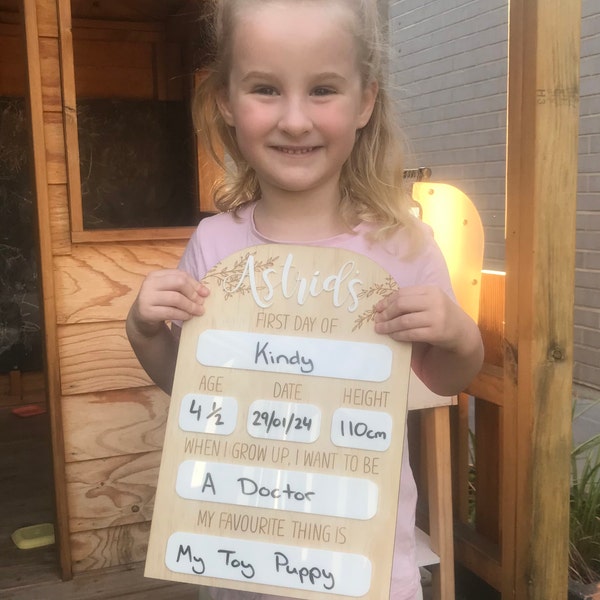 Astrid's
FIRST DAY OF
Kindy
AGE DATE HEIGHT
4 ½ 29/01/24 110cm
WHEN I GROW UP, I WANT TO BE
A Doctor
MY FAVOURITE THING IS
My Toy Puppy